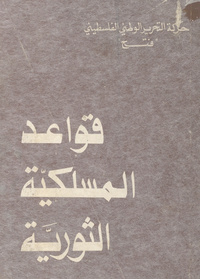 حركة التحرير الوطني الفلسطيني
فتح
قواعد
المسلكيّة
الثوريّة